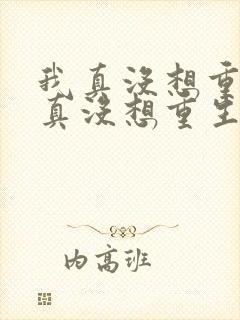 我真没想重
真没想重生
内高班